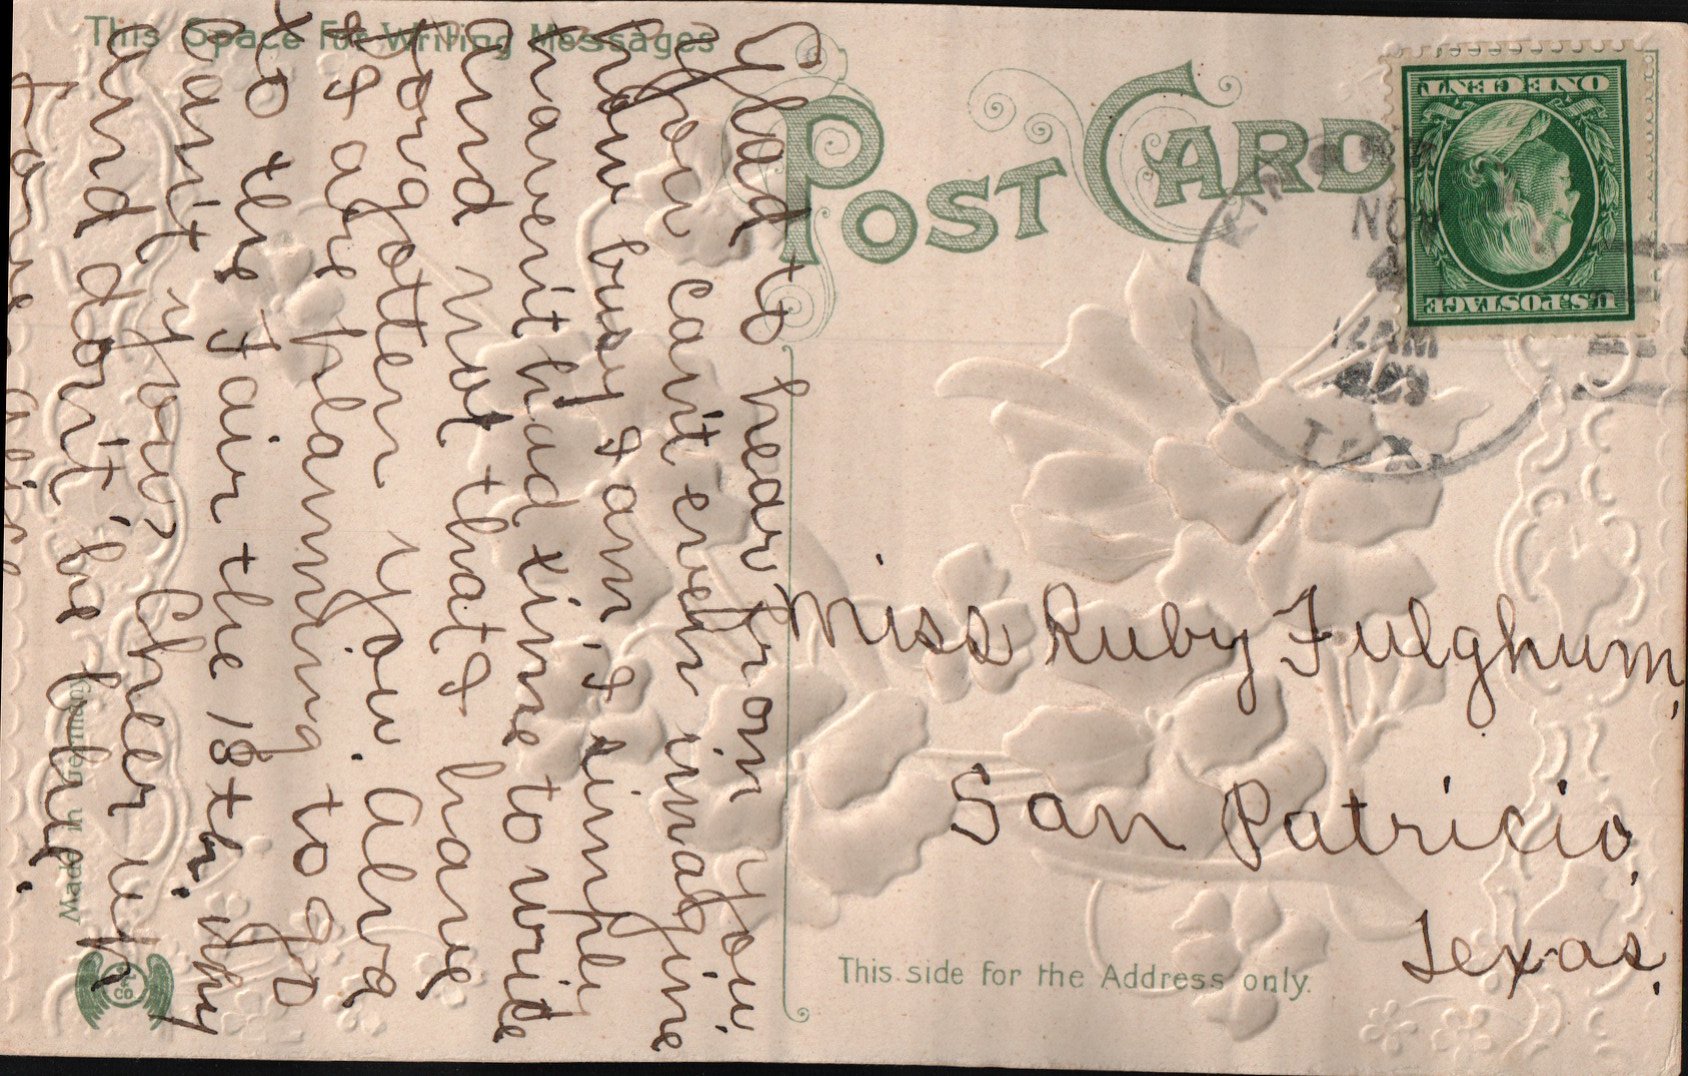 This Space For Writing Messages
POST CARD
U.S. POSTAGE
ONE CENT
NOV
4
12 AM
1909
TEX.
Glad to hear from you.
You can't even imagine
how busy I am, I simply
haven't had time to write
and not that I have
forgotten you. Alva
& I are planning to go
to the Fair the 18th. Why
can't you? Cheer up
and don't be blue.
Miss Ruby Fulghum,
San Patricio,
Texas.
This side for the Address only.
Made in Germany